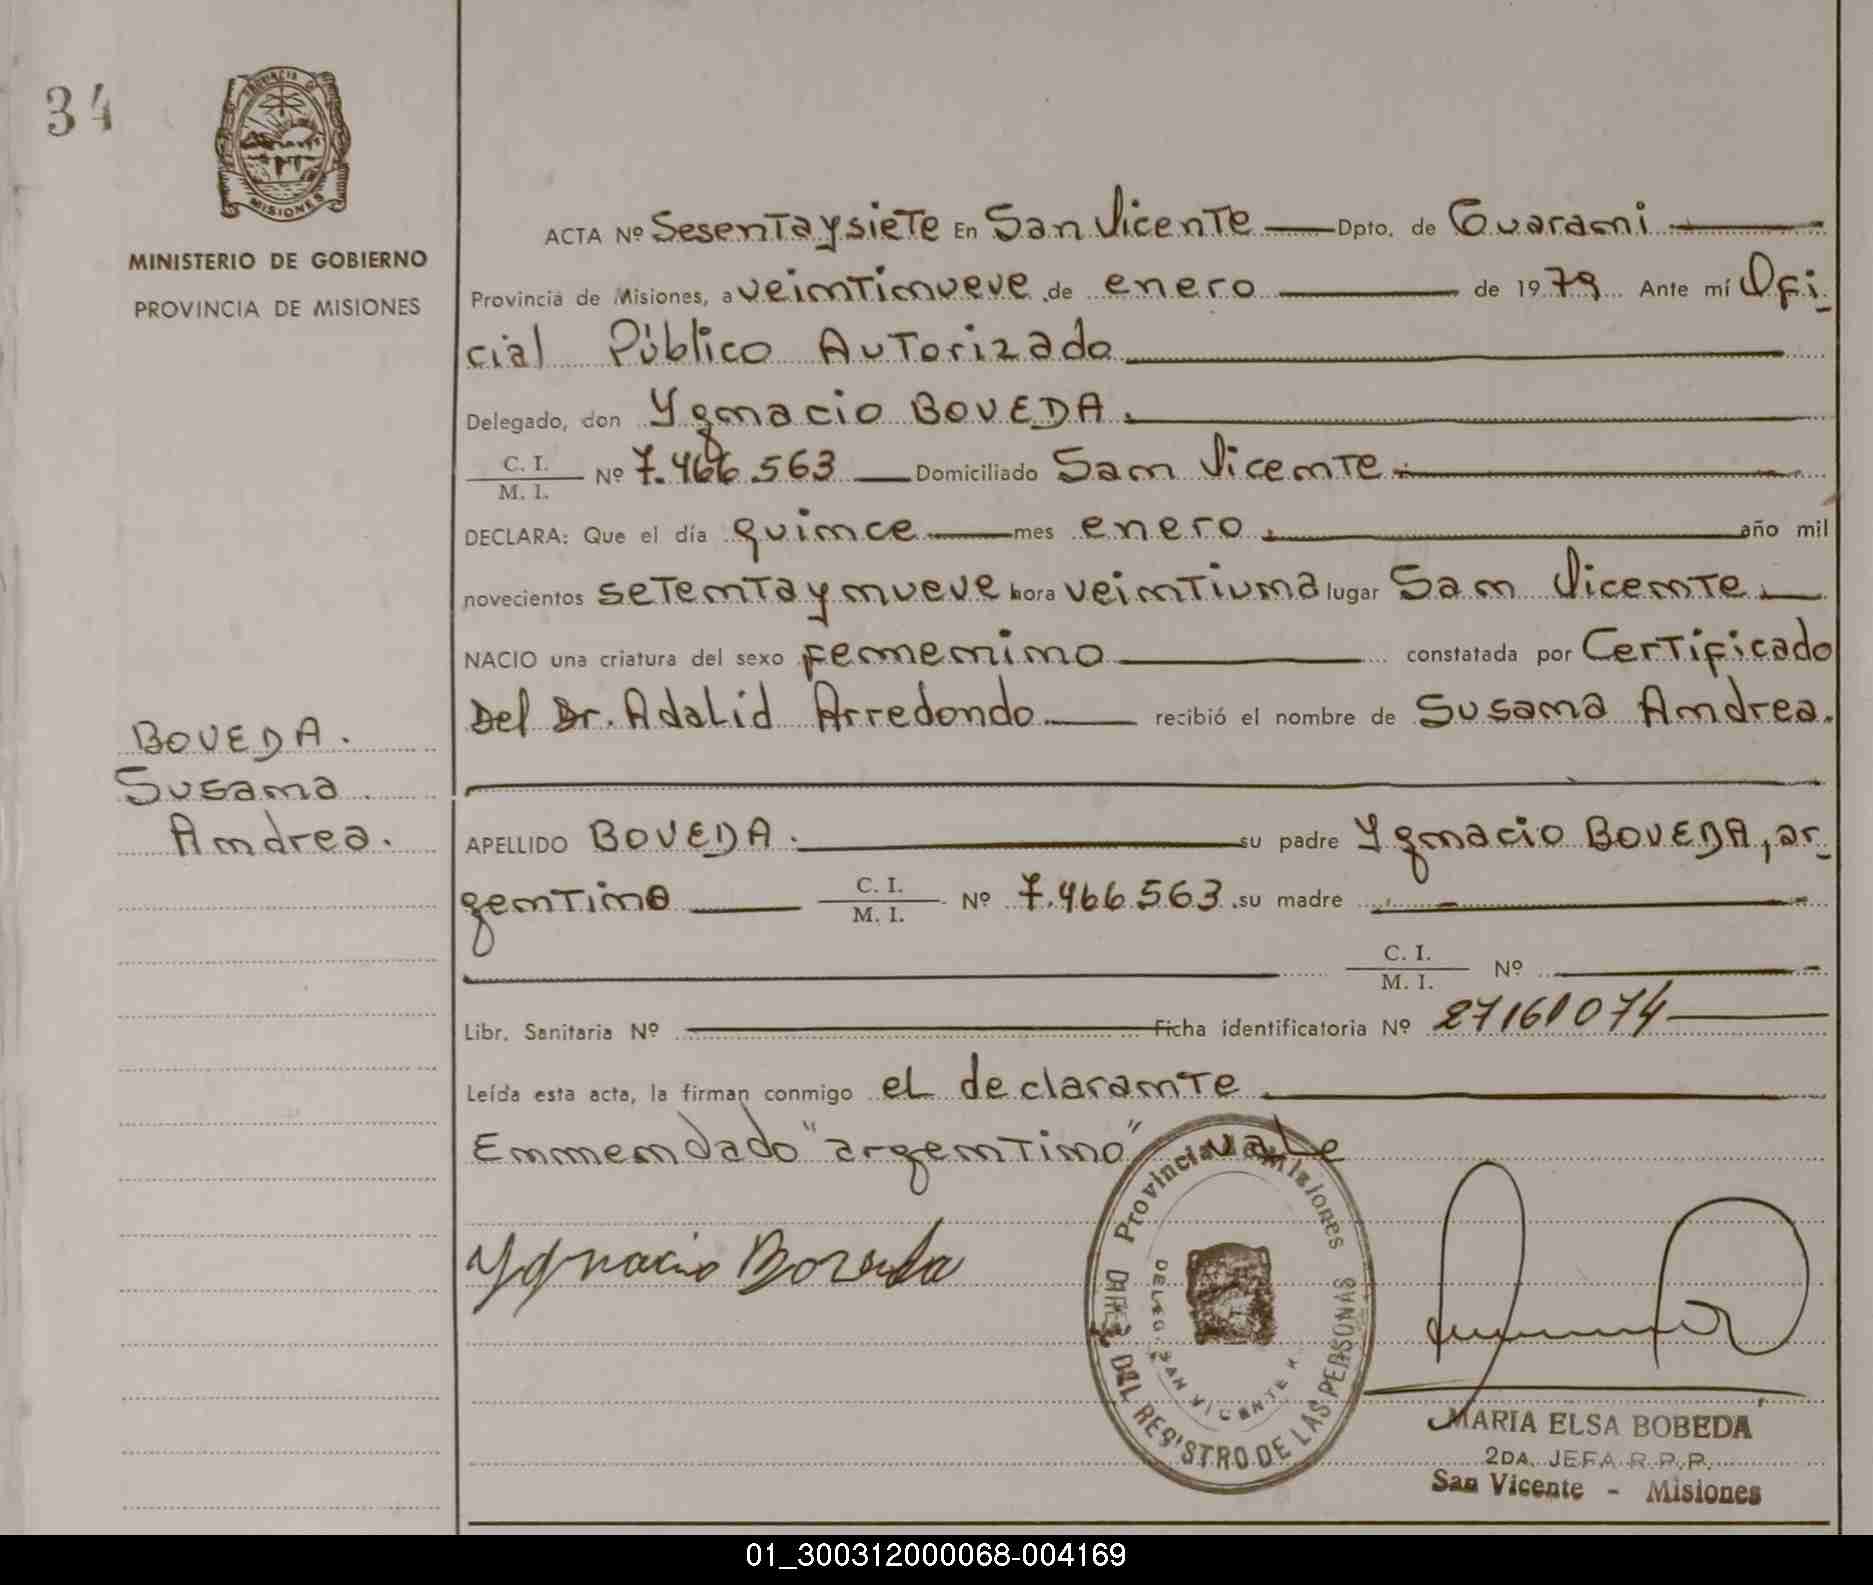 34
PROVINCIA DE
MISIONES
MINISTERIO DE GOBIERNO
PROVINCIA DE MISIONES
ACTA Nº Sesenta y siete En San Vicente Dpto. de Guarani
Provincia de Misiones, a veintinueve de enero de 1979 Ante mí Ofi-
cial Público Autorizado
Delegado, don Ygnacio BOVEDA.
C. I.
M. I. Nº 7.466.563 Domiciliado San Vicente.
DECLARA: Que el día quince mes enero. año mil
novecientos setenta y nueve hora veintiuna lugar San Vicente
NACIO una criatura del sexo femenino constatada por Certificado
Del Dr. Adalid Arredondo recibió el nombre de Susana Andrea.
BOVEDA.
Susana
Andrea.
APELLIDO BOVEDA. su padre Ygnacio BOVEDA, ar-
gentino C. I.
M. I. Nº 7.466.563 su madre
C. I.
M. I. Nº
Libr. Sanitaria Nº Ficha identificatoria Nº 27161074
Leída esta acta, la firman conmigo el declarante
Enmendado "argentino" vale
Ygnacio Boveda
Provincia Misiones
DEL REGISTRO DE LAS PERSONAS
DELEG. SAN VICENTE
MARIA ELSA BOBEDA
2DA. JEFA R.P.P.
San Vicente - Misiones
01_300312000068-004169